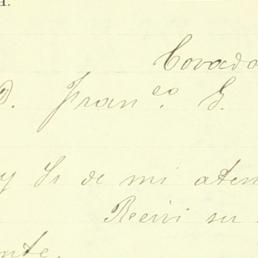 H.
Covado
D. Franco G.
y Sr de mi aten
Recivi su
ente.